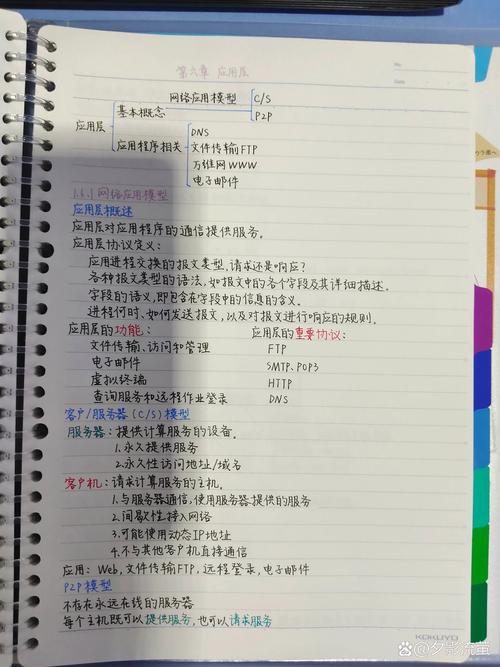 第六章 应用层
No.
Date
网络应用模型 C/S
基本概念 P2P
应用层 DNS
应用程序相关 文件传输FTP
万维网WWW
电子邮件
1.6.1网络应用模型
应用层概述
应用层对应用程序的通信提供服务。
应用层协议定义:
应用进程交换的报文类型,请求还是响应?
各种报文类型的语法,如报文中的各个字段及其详细描述。
字段的语义,即包含在字段中的信息的含义。
进程何时、如何发送报文,以及对报文进行响应的规则。
应用层的功能: 应用层的重要协议:
文件传输、访问和管理 FTP
电子邮件 SMTP、POP3
虚拟终端 HTTP
查询服务和远程作业登录 DNS
客户/服务器(C/S)模型
服务器:提供计算服务的设备。
1.永久提供服务
2.永久性访问地址/域名
客户机:请求计算服务的主机。
1.与服务器通信,使用服务器提供的服务
2.间歇性接入网络
3.可能使用动态IP地址
4.不与其他客户机直接通信
应用:Web,文件传输FTP,远程登录,电子邮件
P2P模型
不存在永远在线的服务器
每个主机既可以提供服务,也可以请求服务
KOKUYO
夕影流萤